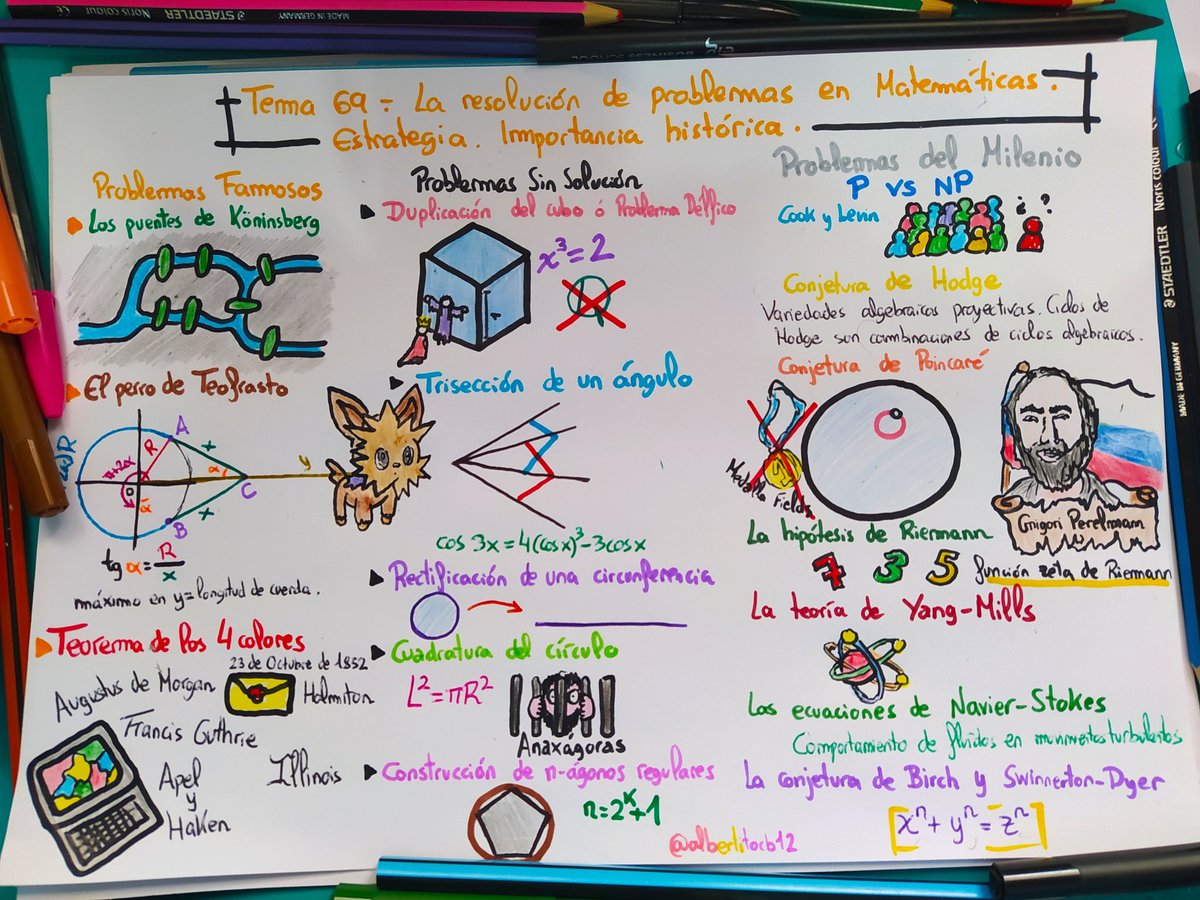 Tema 69 - La resolución de problemas en Matemáticas.
Estrategia. Importancia histórica.
Problemas Famosos
Los puentes de Köninsberg
El perro de Teofrasto
R
A
x
R
π+2α
α
y
C
x
B
tg α = R/x
máximo en y = longitud de cuerda.
Teorema de los 4 colores
23 de Octubre de 1852
Augustus de Morgan
Hamilton
Francis Guthrie
Apel
y
Haken
Illinois
Problemas Sin Solución
Duplicación del cubo ó Problema Délfico
x³=2
Trisección de un ángulo
cos 3x = 4(cosx)³-3cosx
Rectificación de una circunferencia
Cuadratura del círculo
L²=πR²
Anaxágoras
Construcción de n-ágonos regulares
n=2ᴷ+1
@albertitocb12
Problemas del Milenio
P vs NP
Cook y Levin
¿?
Conjetura de Hodge
Variedades algebraicas proyectivas. Ciclos de
Hodge son combinaciones de ciclos algebraicos.
Conjetura de Poincaré
Medalla Fields
Grigori Perelmann
La hipótesis de Riemann
7 3 5
función zeta de Riemann
La teoría de Yang-Mills
Las ecuaciones de Navier-Stokes
Comportamiento de fluidos en movimientos turbulentos
La conjetura de Birch y Swinnerton-Dyer
xⁿ+yⁿ=zⁿ
Noris colour
STAEDTLER
MADE IN GERMANY
STAEDTLER
Noris colour
MADE IN GERMANY